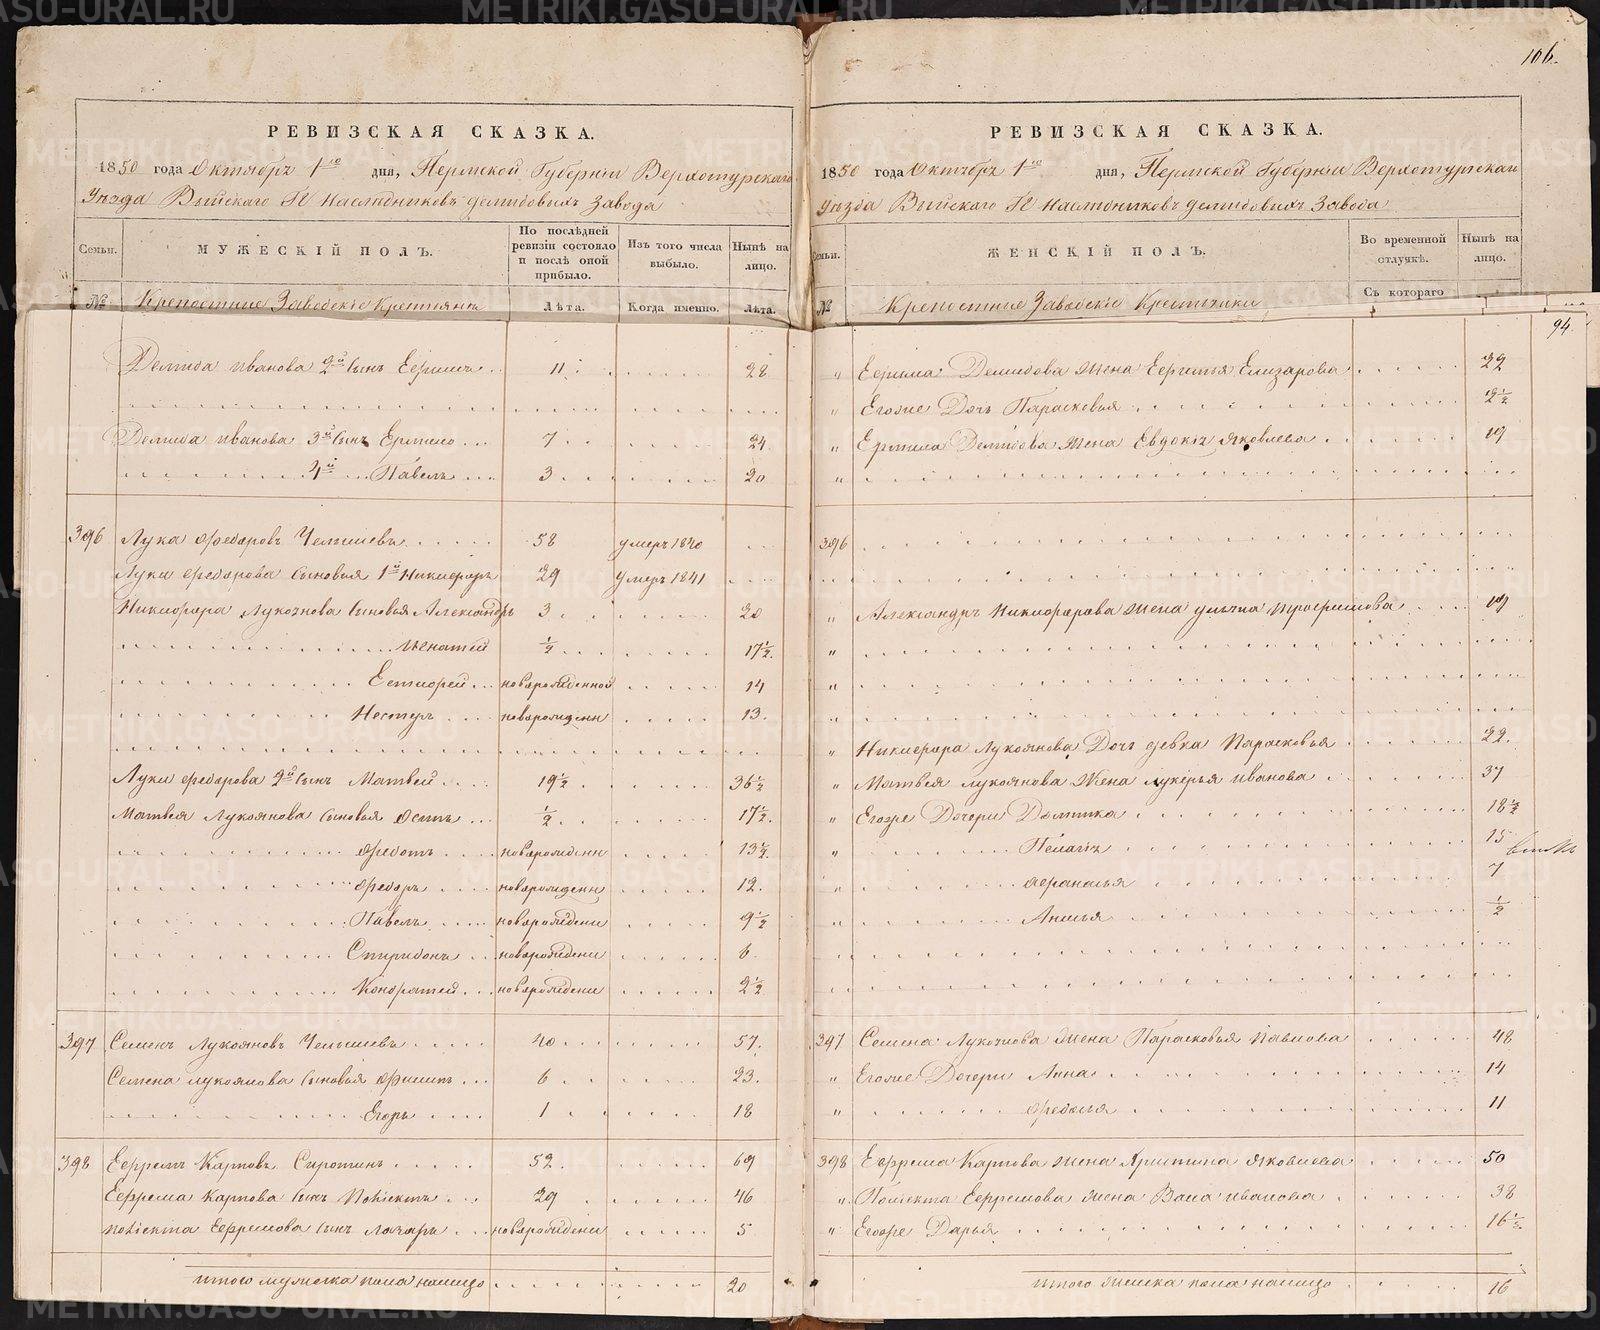 106.
РЕВИЗСКАЯ СКАЗКА.
1850 года Октября 1го дня, Пермской Губернiи Верхотурскаго
Уѣзда Выйскаго Гг Наслѣдниковъ Демидовыхъ Завода
Семьи.
МУЖЕСКIЙ ПОЛЪ.
По послѣдней ревизiи состояло и послѣ оной прибыло.
Изъ того числа выбыло.
Нынѣ на лицо.
№ Крепостные Заводскiе Крестьяне Лѣта. Когда именно. Лѣта.
Демида Иванова 2й Сынъ Ефимъ 11 28
Демида Иванова 3й Сынъ Ермило 7 24
4й Павелъ 3 20
396 Лука Федоровъ Челышевъ 58 умеръ 1840
Луки Федорова Сыновья 1й Никифоръ 29 умеръ 1841
Никифора Лукоянова Сыновья Александръ 3 20
Игнатей ½ 17½
новорожденной 14
Нестеръ новорожденн 13.
Луки Федорова 2й Сынъ Матвей 19½ 36½
Матвея Лукоянова Сыновья Осипъ ½ 17½
Федотъ новорожденн 13½
Федоръ новорожденн 12.
Павелъ новорожденн 9½
Спиридонъ новорожденн 6
Кондратей новорожденн 2½
397 Семенъ Лукояновъ Челышевъ 40 57.
Семена Лукоянова Сыновья Филипъ 6 23.
Егоръ 1 18
398 Ефремъ Карповъ Сиротинъ 52. 69
Ефрема Карпова Сынъ 29 46
Ефремова Сынъ Лазарь новорожденн 5
Итого мужеска пола налицо 20
РЕВИЗСКАЯ СКАЗКА.
1850 года Октября 1го дня, Пермской Губернiи Верхотурскаго
Уѣзда Выйскаго Гг Наслѣдниковъ Демидовыхъ Завода
Семьи.
ЖЕНСКIЙ ПОЛЪ.
Во временной отлучкѣ.
Нынѣ на лицо.
№ Крепостные Заводскiе Крестьянки Съ котораго
94.
" Ефима Демидова Жена Елизарова 22
" Егоже Дочь Парасковья 2½
" Ермила Демидова Жена Евдокiя Яковлева 19
"
396
" Александръ Никифорова Жена Ульяна Трофимова 19
"
"
"
" Никифора Лукоянова Дочь девка Парасковья 22.
" Матвея Лукоянова Жена Лукерья Иванова 37
" Егоже Дочери 18½
" Пелагiя 15
" Афанасья 7
" Анисья ½
397 Семена Лукоянова Жена Парасковья Павлова 48
" Егоже Дочери Анна 14
" Федосья 11
398 Ефрема Карпова Жена Яковлева 50
" Ефремова Жена Васа Иванова 38
" Егоже Дарья 16½
Итого Женска пола налицо 16
METRIKI.GASO-URAL.RU